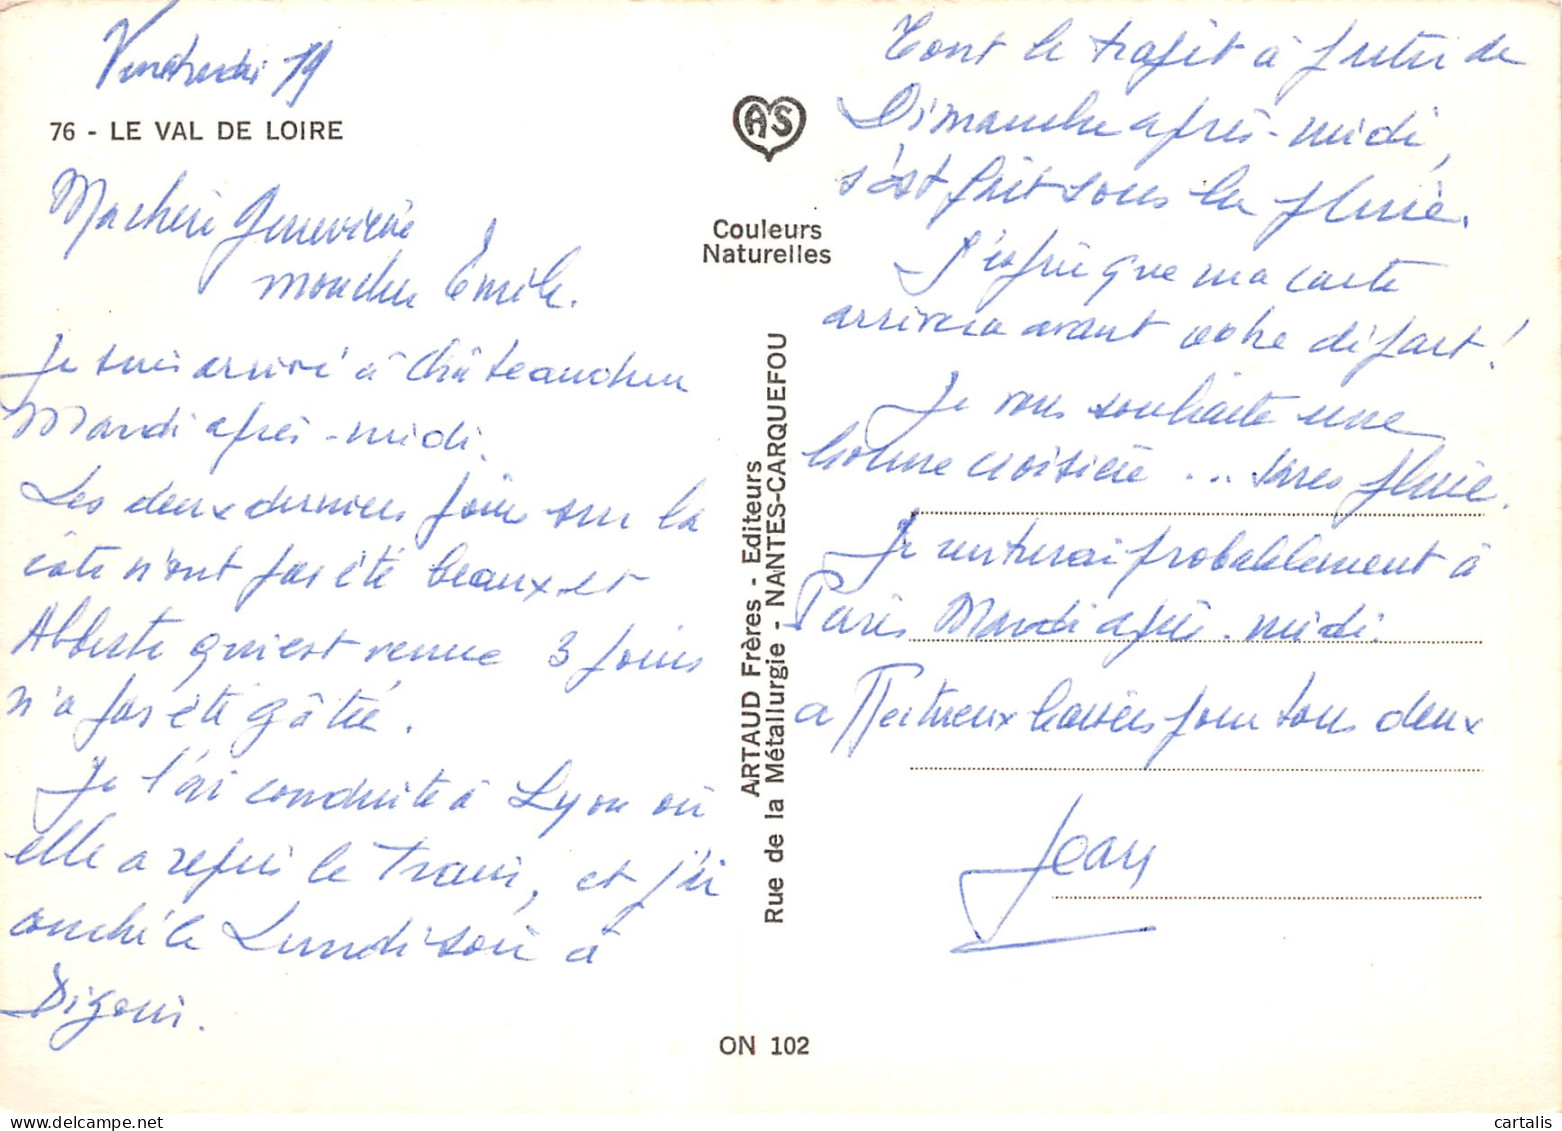 Vendredi 19
76 - LE VAL DE LOIRE
Ma chère Geneviève
mon cher Emile.
Je suis arrivé à Châteaudun
Mardi après-midi.
Les deux derniers jours sur la
côte n'ont pas été beaux et
qui est venue 3 jours
n'a pas été gâtée.
Je l'ai conduite à Lyon où
elle a repris le train, et j'ai
couché le Lundi soir à
Digoin.
AS
Couleurs
Naturelles
ARTAUD Frères - Editeurs
Rue de la Métallurgie - NANTES-CARQUEFOU
ON 102
Tout le trajet à partir de
Dimanche après-midi,
s'est fait sous la pluie.
J'espère que ma carte
arrivera avant votre départ!
Je vous souhaite une
bonne croisière ... sans pluie.
Je rentrerai probablement à
Paris Mardi après-midi.
Affectueux baisers pour tous deux
Jean
cartalis